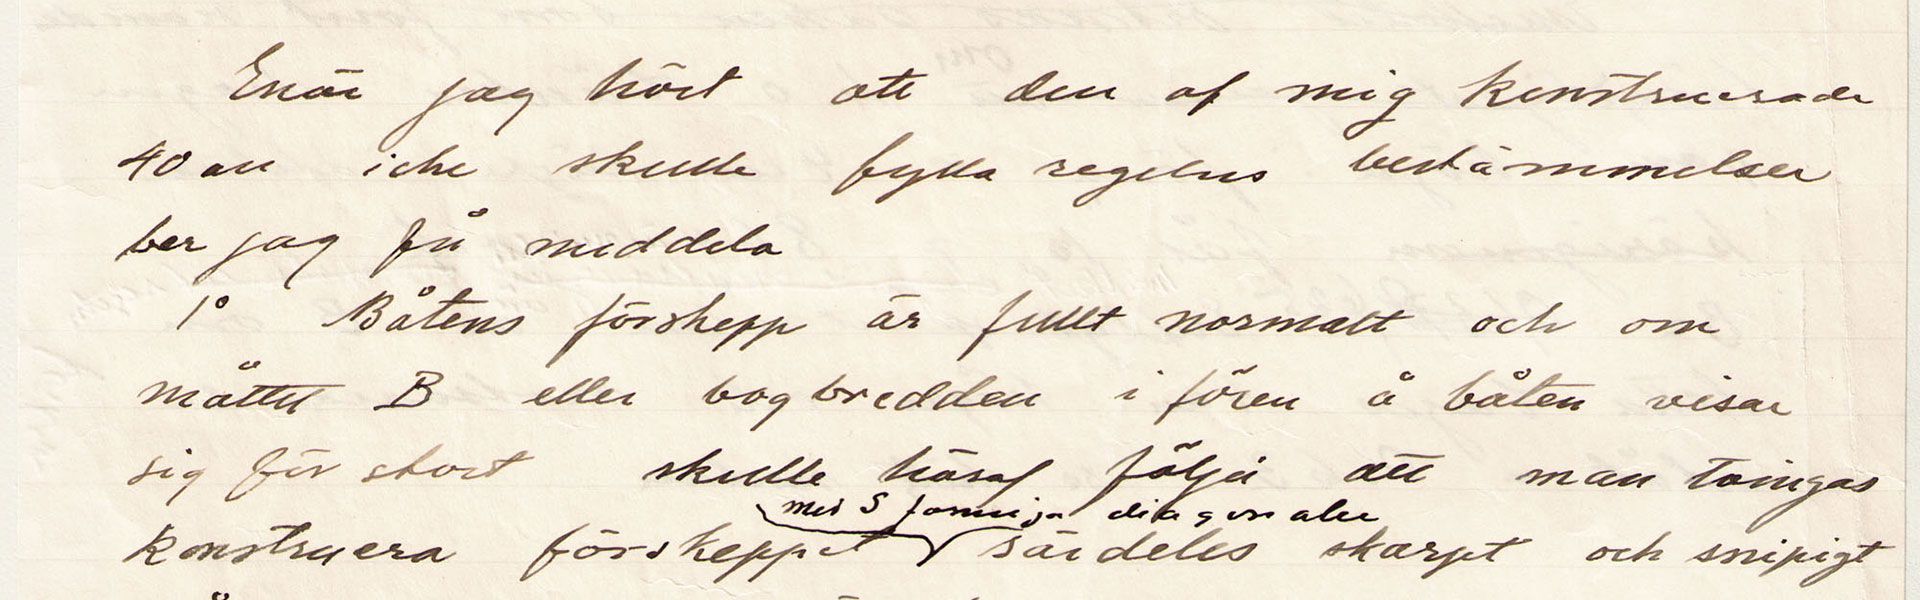 Enär jag hört att den af mig konstruerade
40 an icke skulle fylla regelns bestämmelser
ber jag få meddela
1º Båtens förskepp är fullt normalt och om
måttet B eller bogbredden i fören å båten visar
sig för stort skulle häraf följa att man tvingas
med S formiga diagonaler
konstruera förskeppet särdeles skarpt och snipigt